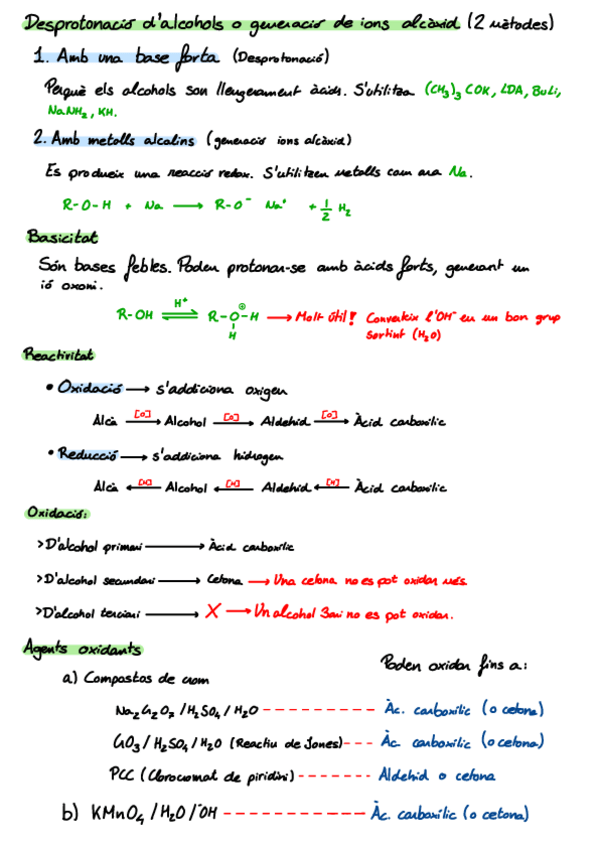 Desprotonació d'alcohols o generació de ions alcòxid (2 mètodes)
1. Amb una base forta (Desprotonació)
Perquè els alcohols son lleugerament àcids. S'utilitza (CH₃)₃COK, LDA, BuLi,
NaNH₂, KH.
2. Amb metalls alcalins (generació ions alcòxid)
Es produeix una reacció redox. S'utilitzen metalls com ara Na.
R-O-H + Na ⟶ R-O⁻ Na⁺ + 1/2 H₂
Basicitat
Són bases febles. Poden protonar-se amb àcids forts, generant un
ió oxoni.
R-OH ⇌ H⁺ R-O⊕-H ⟶ Molt útil! Converteix l'OH⁻ en un bon grup
H sortint (H₂O)
Reactivitat
• Oxidació ⟶ s'addiciona oxigen
Alcà [O]⟶ Alcohol [O]⟶ Aldehid [O]⟶ Àcid carboxílic
• Reducció ⟶ s'addiciona hidrogen
Alcà ⟵[H] Alcohol ⟵[H] Aldehid ⟵[H] Àcid carboxílic
Oxidació:
>D'alcohol primari ⟶ Àcid carboxílic
>D'alcohol secundari ⟶ Cetona ⟶ Una cetona no es pot oxidar més
>D'alcohol terciari ⟶ X ⟶ Un alcohol 3ari no es pot oxidar.
Agents oxidants
Poden oxidar fins a:
a) Compostos de crom
Na₂Cr₂O₇ /H₂SO₄ / H₂O - - - Àc. carboxílic (o cetona)
CrO₃ / H₂SO₄ /H₂O (Reactiu de Jones) - - - Àc. carboxílic (o cetona)
PCC (Clorocromat de piridini) - - - Aldehid o cetona
b) KMnO₄ / H₂O / ⁻OH - - - Àc. carboxílic (o cetona)